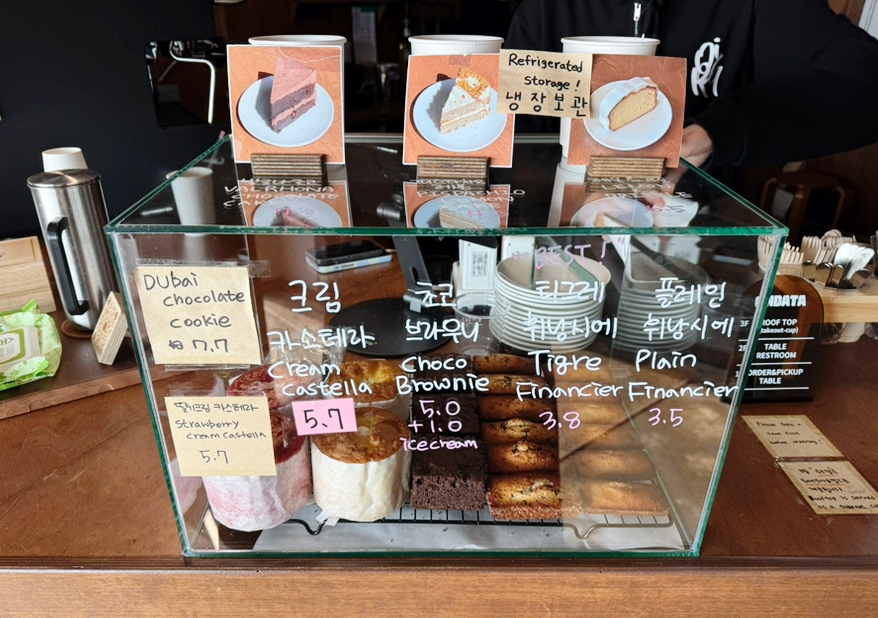 Refrigerated
Storage!
냉장보관
VALRHONA
CHOCOLATE
"BEST!"
DUbai
chocolate
cookie
7.7
크림
카스테라
Cream
Castella
5.7
쵸코
브라우니
Choco
Brownie
5.0
+1.0
icecream
티그레
휘낭시에
Tigre
Financier
3.8
플레인
휘낭시에
Plain
Financier
3.5
딸기크림 카스테라
Strawberry
cream castella
5.7
NDATA
ROOF TOP
(takeout-cup)
TABLE
RESTROOM
ORDER&PICKUP
TABLE
Please take a
seat first
before ordering!